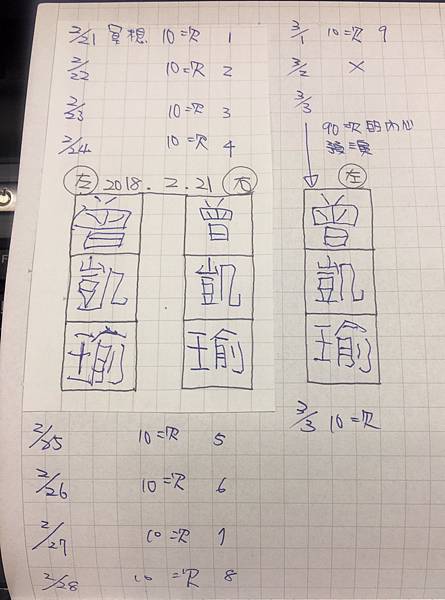 2/21 冥想 10次 1
2/22 10次 2
2/23 10次 3
2/24 10次 4
左 2018.2.21 右
曾 曾
凱 凱
瑜 瑜
2/25 10次 5
2/26 10次 6
2/27 10次 7
2/28 10次 8
3/1 10次 9
3/2 X
3/3
90次的內心
預演
左
曾
凱
瑜
3/3 10次